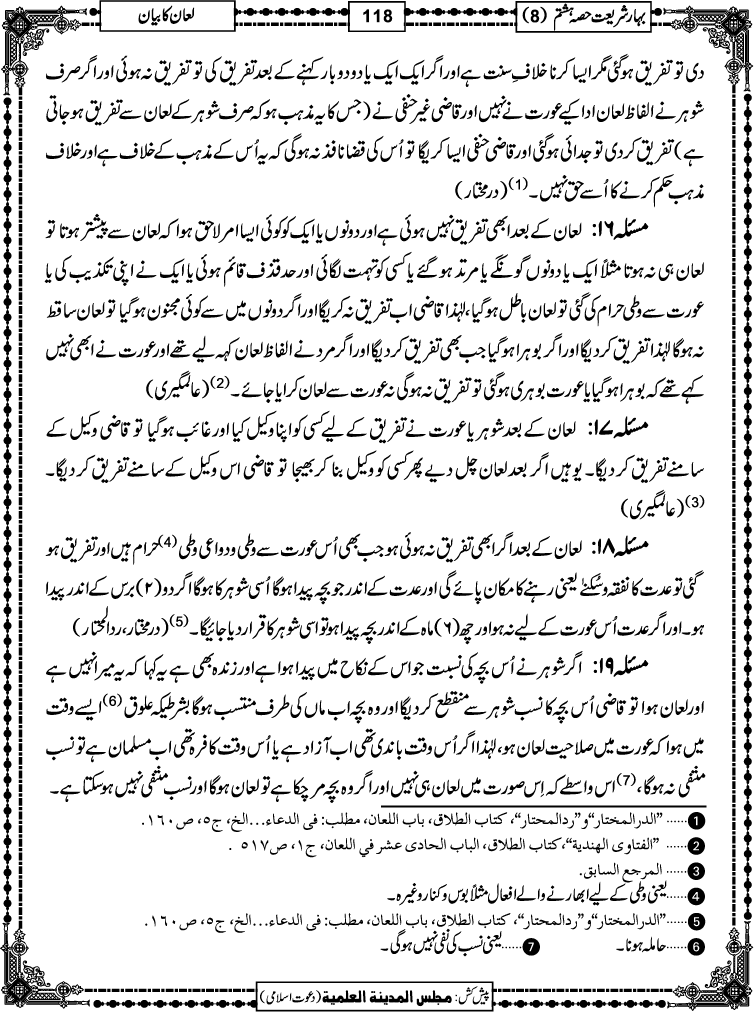 بہارِ شریعت حصہ ہشتم (8)
118
لعان کا بیان
دی تو تفریق ہوگئی مگر ایسا کرنا خلافِ سنت ہے اور اگر ایک ایک یا دو دو بار کہنے کے بعد تفریق کی تو تفریق نہ ہوئی اور اگر صرف
شوہر نے الفاظ لعان ادا کیے عورت نے نہیں اور قاضی غیر حنفی نے (جس کا یہ مذہب ہو کہ صرف شوہر کے لعان سے تفریق ہو جاتی
ہے) تفریق کر دی تو جدائی ہوگئی اور قاضی حنفی ایسا کریگا تو اُس کی قضا نافذ نہ ہوگی کہ یہ اُس کے مذہب کے خلاف ہے اور خلاف
مذہب حکم کرنے کا اُسے حق نہیں۔(1) (درمختار)
مسئلہ ۱۶: لعان کے بعد ابھی تفریق نہیں ہوئی ہے اور دونوں یا ایک کو کوئی ایسا امر لاحق ہوا کہ لعان سے پیشتر ہوتا تو
لعان ہی نہ ہوتا مثلاً ایک یا دونوں گونگے یا مرتد ہو گئے یا کسی کو تہمت لگائی اور حد قذف قائم ہوئی یا ایک نے اپنی تکذیب کی یا
عورت سے وطی حرام کی گئی تو لعان باطل ہو گیا، لہٰذا قاضی اب تفریق نہ کریگا اور اگر دونوں میں سے کوئی مجنون ہوگیا تو لعان ساقط
نہ ہوگا لہٰذا تفریق کر دیگا اور اگر بوہرا ہوگیا جب بھی تفریق کر دیگا اور اگر مرد نے الفاظ لعان کہہ لیے تھے اور عورت نے ابھی نہیں
کہے تھے کہ بوہرا ہوگیا یا عورت بوہری ہوگئی تو تفریق نہ ہوگی نہ عورت سے لعان کرایا جائے۔(2) (عالمگیری)
مسئلہ ۱۷: لعان کے بعد شوہر یا عورت نے تفریق کے لیے کسی کو اپنا وکیل کیا اور غائب ہوگیا تو قاضی وکیل کے
سامنے تفریق کر دیگا۔ یوہیں اگر بعد لعان چل دیے پھر کسی کو وکیل بنا کر بھیجا تو قاضی اس وکیل کے سامنے تفریق کر دیگا۔
(3) (عالمگیری)
مسئلہ ۱۸: لعان کے بعد اگر ابھی تفریق نہ ہوئی ہو جب بھی اُس عورت سے وطی و دواعی وطی (4) حرام ہیں اور تفریق ہو
گئی تو عدت کا نفقہ و سُکنٰے یعنی رہنے کا مکان پائے گی اور عدت کے اندر جو بچہ پیدا ہوگا اُسی شوہر کا ہوگا اگر دو (۲) برس کے اندر پیدا
ہو۔ اور اگر عدت اُس عورت کے لیے نہ ہو اور چھ (۶) ماہ کے اندر بچہ پیدا ہو تو اسی شوہر کا قرار دیا جائیگا۔(5) (درمختار، ردالمحتار)
مسئلہ ۱۹: اگر شوہر نے اُس بچہ کی نسبت جو اس کے نکاح میں پیدا ہوا ہے اور زندہ بھی ہے یہ کہا کہ یہ میرا نہیں ہے
اور لعان ہوا تو قاضی اُس بچہ کا نسب شوہر سے منقطع کر دیگا اور وہ بچہ اب ماں کی طرف منتسب ہوگا بشرطیکہ علوق (6) ایسے وقت
میں ہوا کہ عورت میں صلاحیت لعان ہو، لہٰذا اگر اُس وقت باندی تھی اب آزاد ہے یا اُس وقت کافرہ تھی اب مسلمان ہے تو نسب
منتفی نہ ہوگا، (7) اس واسطے کہ اِس صورت میں لعان ہی نہیں اور اگر وہ بچہ مر چکا ہے تو لعان ہوگا اور نسب منتفی نہیں ہوسکتا ہے۔
1 ...... "الدرالمختار" و "ردالمحتار"، کتاب الطلاق، باب اللعان، مطلب: فی الدعاء...الخ، ج۵، ص۱۶۰.
2 ...... "الفتاوی الهندية"، کتاب الطلاق، الباب الحادی عشر في اللعان، ج۱، ص۵۱۷.
3 ...... المرجع السابق.
4 ...... یعنی وطی کے لیے ابھارنے والے افعال مثلاً بوس و کنار وغیرہ۔
5 ...... "الدرالمختار" و "ردالمحتار"، کتاب الطلاق، باب اللعان، مطلب: فی الدعاء...الخ، ج۵، ص۱۶۰.
6 ...... حاملہ ہونا۔ 7 ...... یعنی نسب کی نفی نہیں ہوگی۔
پیش کش: مجلس المدينة العلمية (دعوت اسلامی)